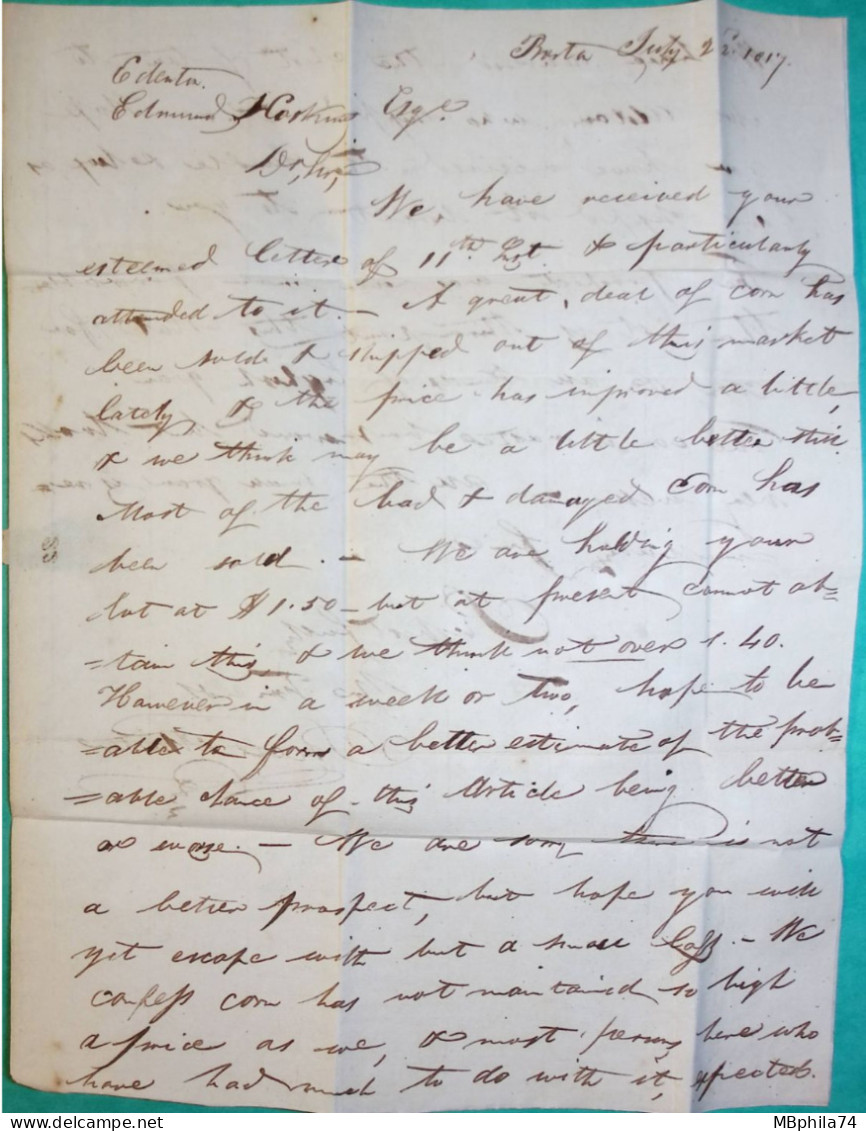 Bosta July 22d 1817.
Edenta.
Edmund Hoskins Esqr.
Dr, Sir,
We, have received your
esteemed letter of 11th Inst. & particularly
attended to it. – A great, deal of corn has
been sold & shipped out of this market
lately & the price has improved a little,
& we think may be a little better still.
Most of the bad & damaged Corn has
been sold. – We are holding your
Lot at $1.50 – but at present cannot ob=
=tain this, & we think not over 1.40.
However in a week or two, hope to be
=able to form a better estimate of the prob=
=able chance of this Article being better
or worse. – We are sorry there is not
a better prospect, but hope you will
yet escape with but a small Loss. – We
confess corn has not maintained so high
a price as we, & most persons here who
have had much to do with it, expected.
MBphila74